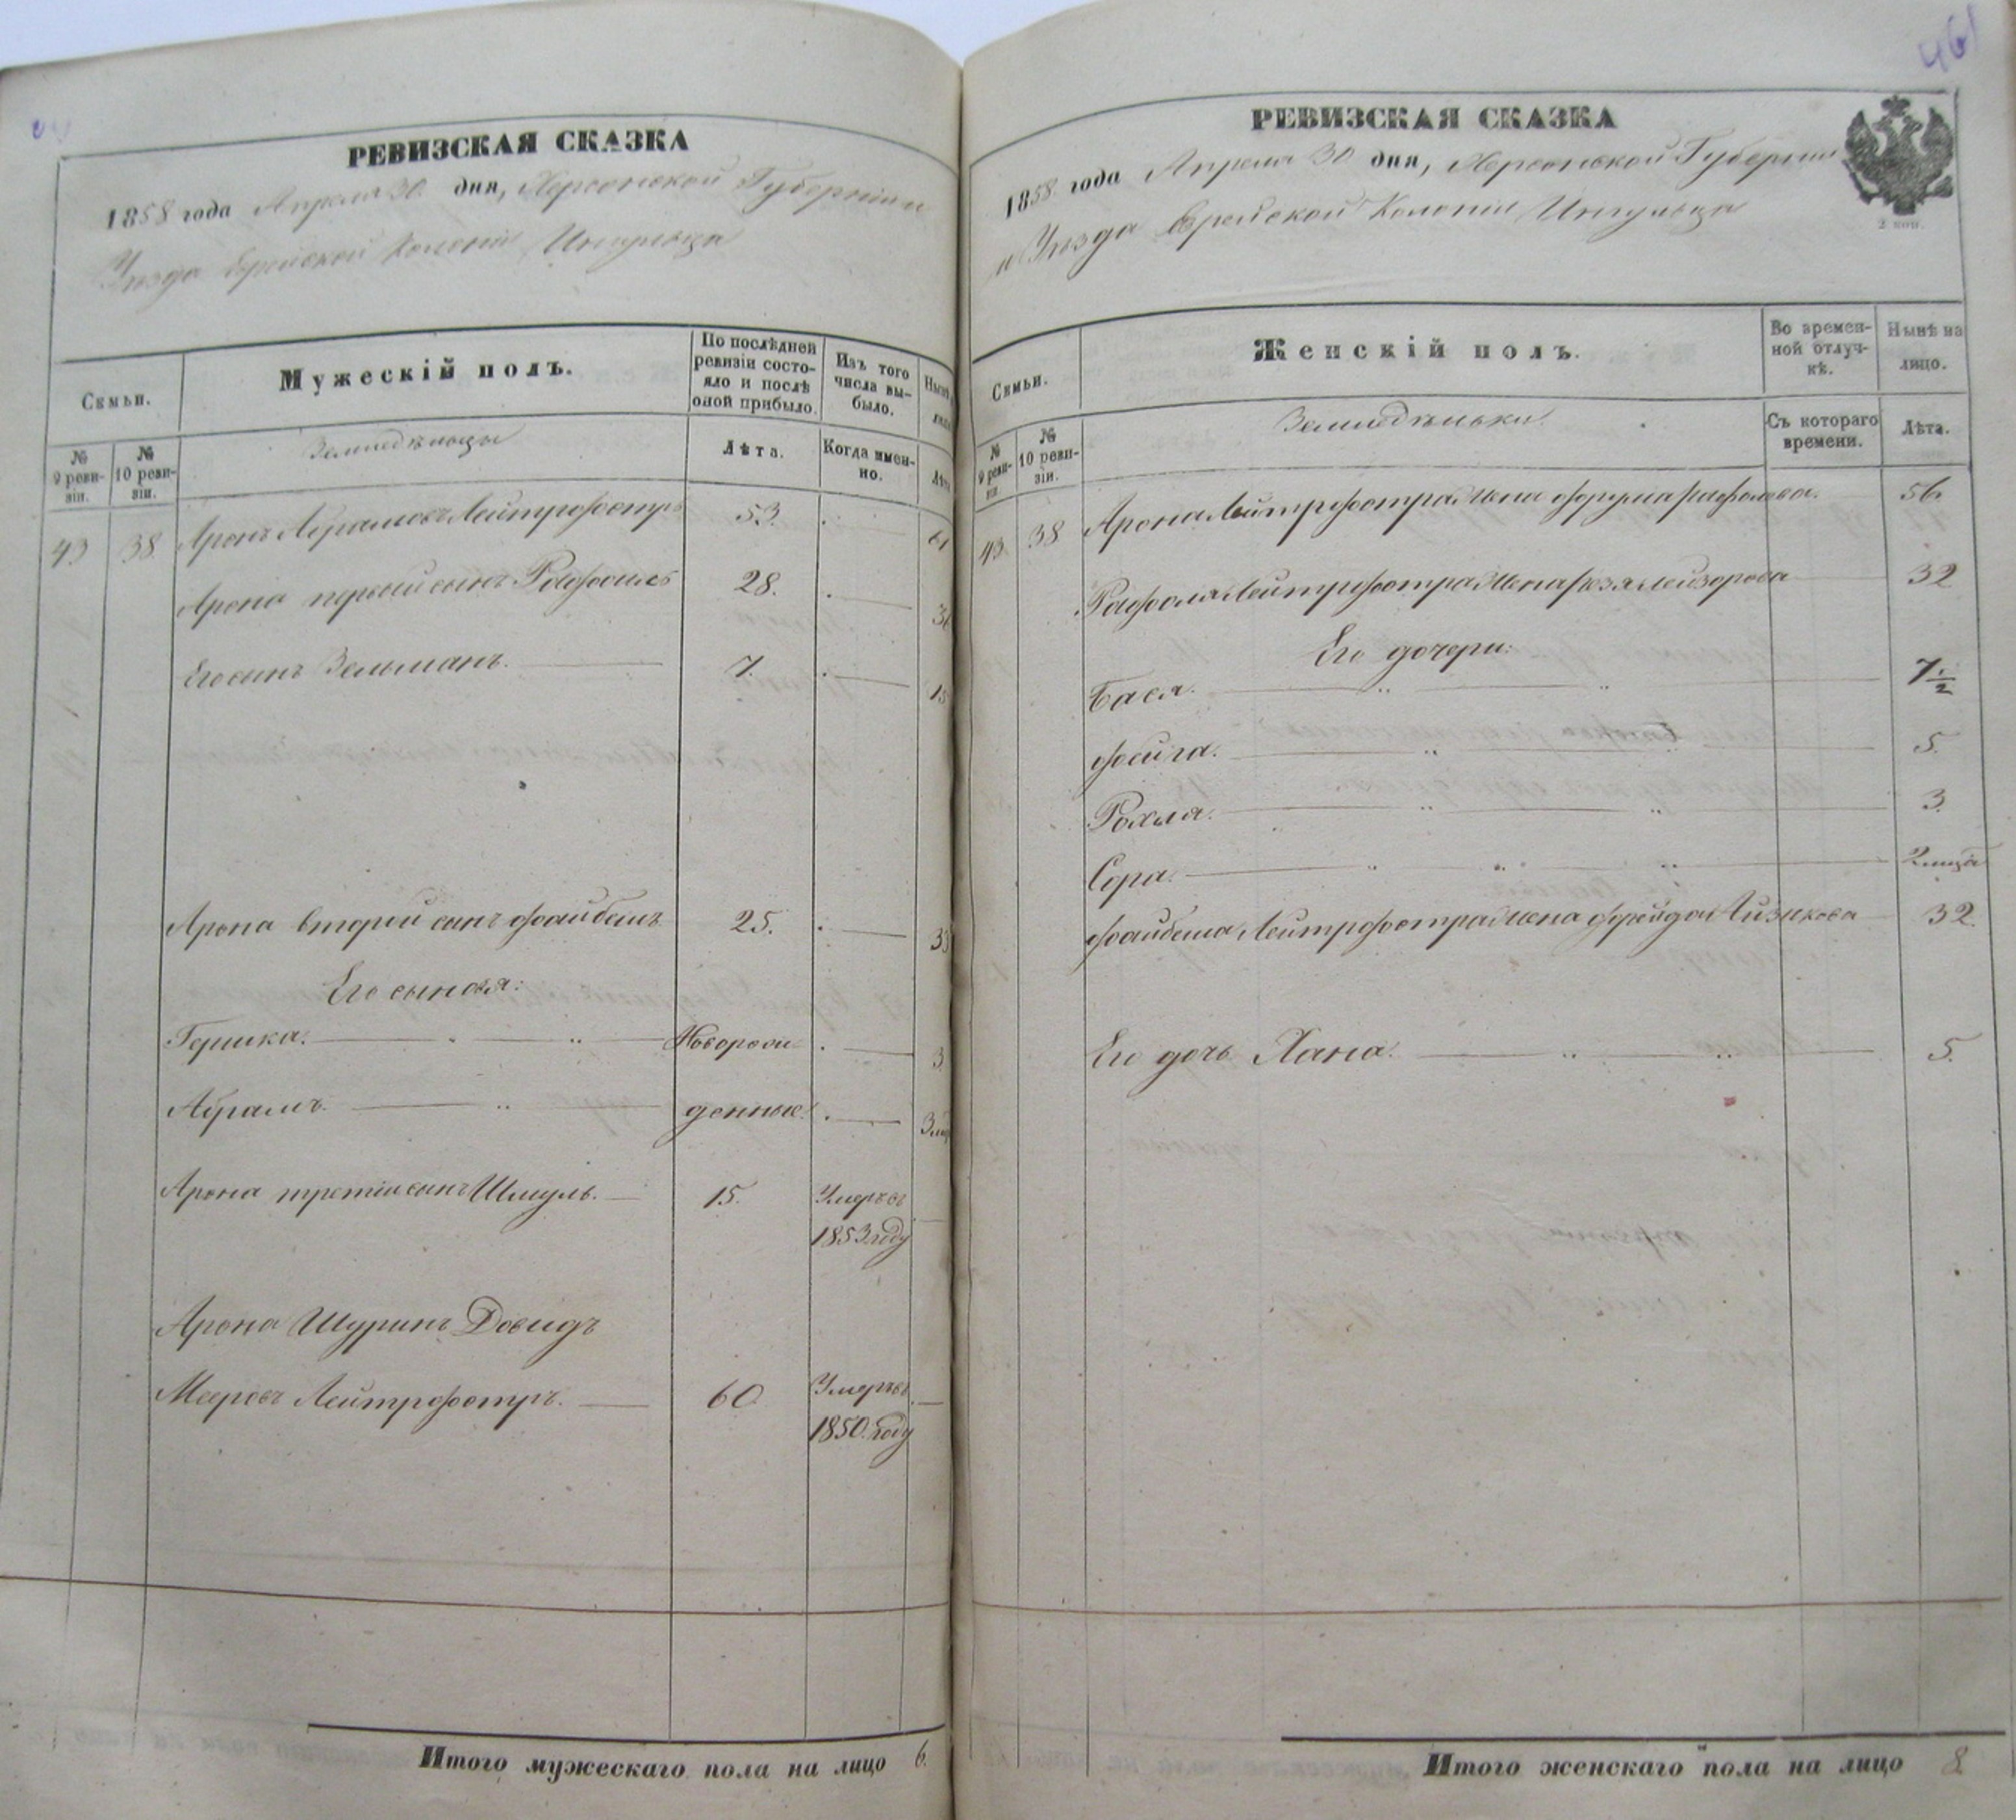 461
РЕВИЗСКАЯ СКАЗКА
1858 года Апреля 30 дня, Херсонской Губерніи и
Уѣзда Еврейской Колоніи Ингульца
Семьи.
Мужескій полъ.
По послѣдней ревизіи состояло и послѣ оной прибыло.
Изъ того числа выбыло.
№ 9 ревизіи.
№ 10 ревизіи.
Земледѣльцы
Лѣта.
Когда именно.
Лѣта
43 38 Аронъ Абрамовъ Лейтрфортръ 53. 61
Арона первый сынъ Рафоилъ 28. 36
Его сынъ Зельманъ. 7. 15
Арона второй сынъ Файбешъ 25. 33
Его сыновя:
Гершка. Новорож- 3
Абрамъ. денные.
Арона третій сынъ Шмуль. 15. Умеръ въ
1853 году
Арона Шуринъ Довидъ
Мееровъ Лейтрфортръ. 60 Умеръ въ
1850. году
Итого мужескаго пола на лицо 6.
РЕВИЗСКАЯ СКАЗКА
1858 года Апреля 30 дня, Херсонской Губерніи
и Уѣзда Еврейской Колоніи Ингульца
2 коп.
Семьи.
Женскій полъ.
Во временной отлучкѣ.
Нынѣ на лицо.
№ 9 ревизіи.
№ 10 ревизіи.
Земледѣльки
Съ котораго времени.
Лѣта.
43 38 Арона Лейтрфортра жена Фрума Рафолова. 56
Рафоила Лейтрфортра жена Рузя Лейзорова 32
Его дочери:
Бася. 7 1/2
Фейга. 5.
Рохля. 3.
Сора. 2 мѣсяца
Файбеша Лейтрфортра жена Фрейда Айзикова 32.
Его дочь Хана. 5.
Итого женскаго пола на лицо 8